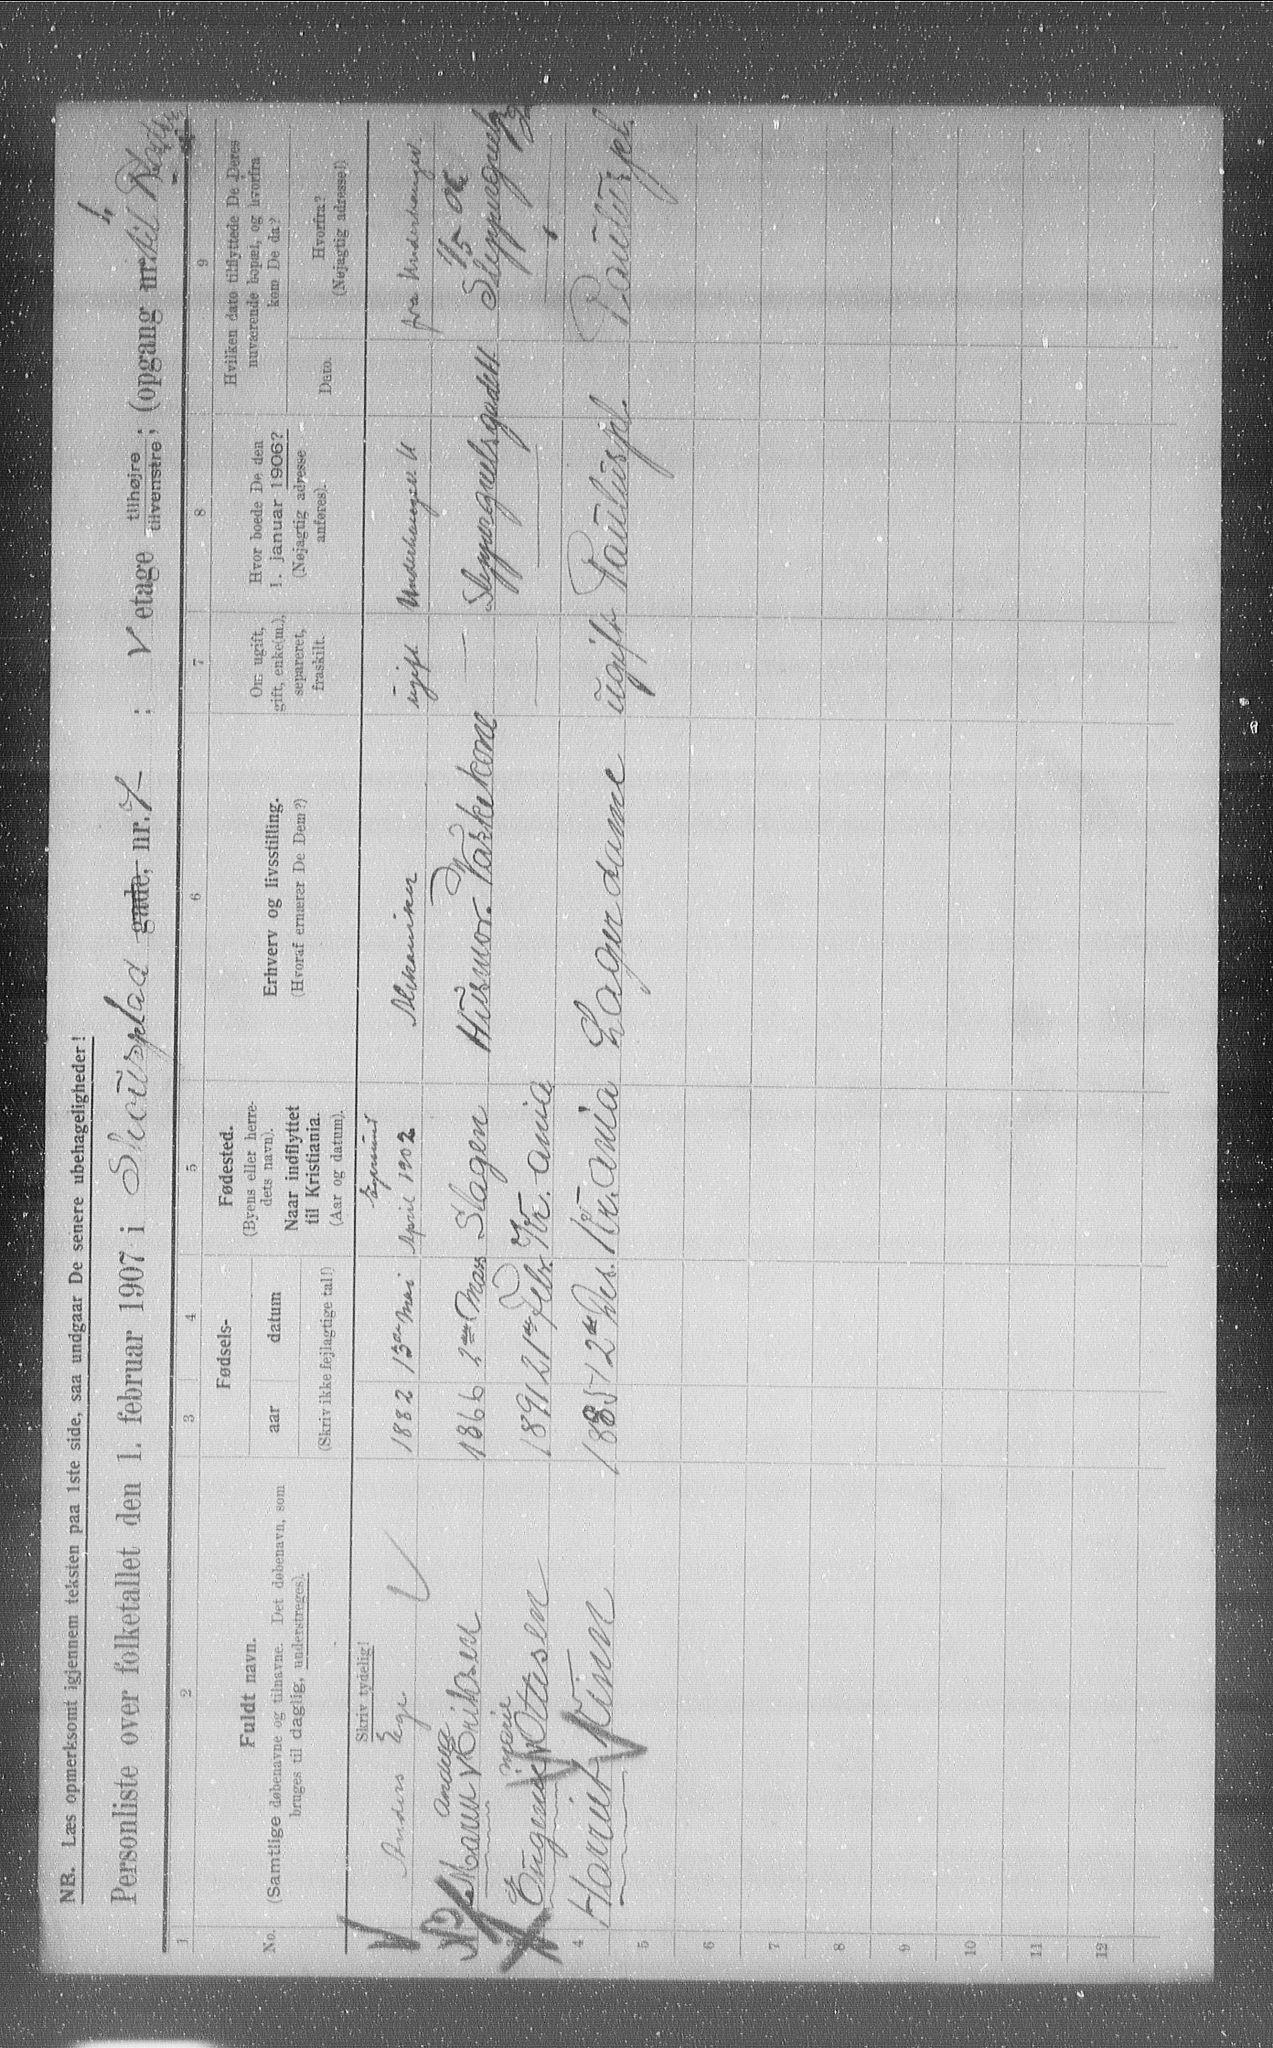 NB. Læs opmerksomt igjennem teksten paa 1ste side, saa undgaar De senere ubehageligheder!
Personliste over folketallet den 1. februar 1907 i Skousplad gade, nr. 7 ; V etage tilhøjre tilvenstre ; (opgang nr. til
1 2 3 4 5 6 7 8 9
No.
Fuldt navn.
(Samtlige døbenavne og tilnavne. Det døbenavn, som
bruges til daglig, understreges).
Fødsels-
aar datum
(Skriv ikke fejlagtige tal!)
Fødested.
(Byens eller herre-
dets navn).
Naar indflyttet
til Kristiania.
(Aar og datum).
Erhverv og livsstilling.
(Hvoraf ernærer De Dem?)
Om ugift,
gift, enke(m.),
separeret,
fraskilt.
Hvor boede De den
1. januar 1906?
(Nøjagtig adresse
anføres).
Hvilken dato tilflyttede De Deres
nuværende bopæl, og hvorfra
kom De da?
Dato.
Hvorfra?
(Nøjagtig adresse!)
Skriv tydelig!
Anders Ege 1882 13 Mai April 1902 Mekaniker ugift fra
Andrea
Maren Eriksen 1866 2 Mars Slagen Husmor. Vaskekone — 1/5 06
Marie
Eugenie Ottesen 1891 21 Febr. Kr.ania
4 Harriet Finn 1885 12 Des. Kr.ania Lagerdame ugift Pauluspl. Pauluspl.
5
6
7
8
9
10
11
12